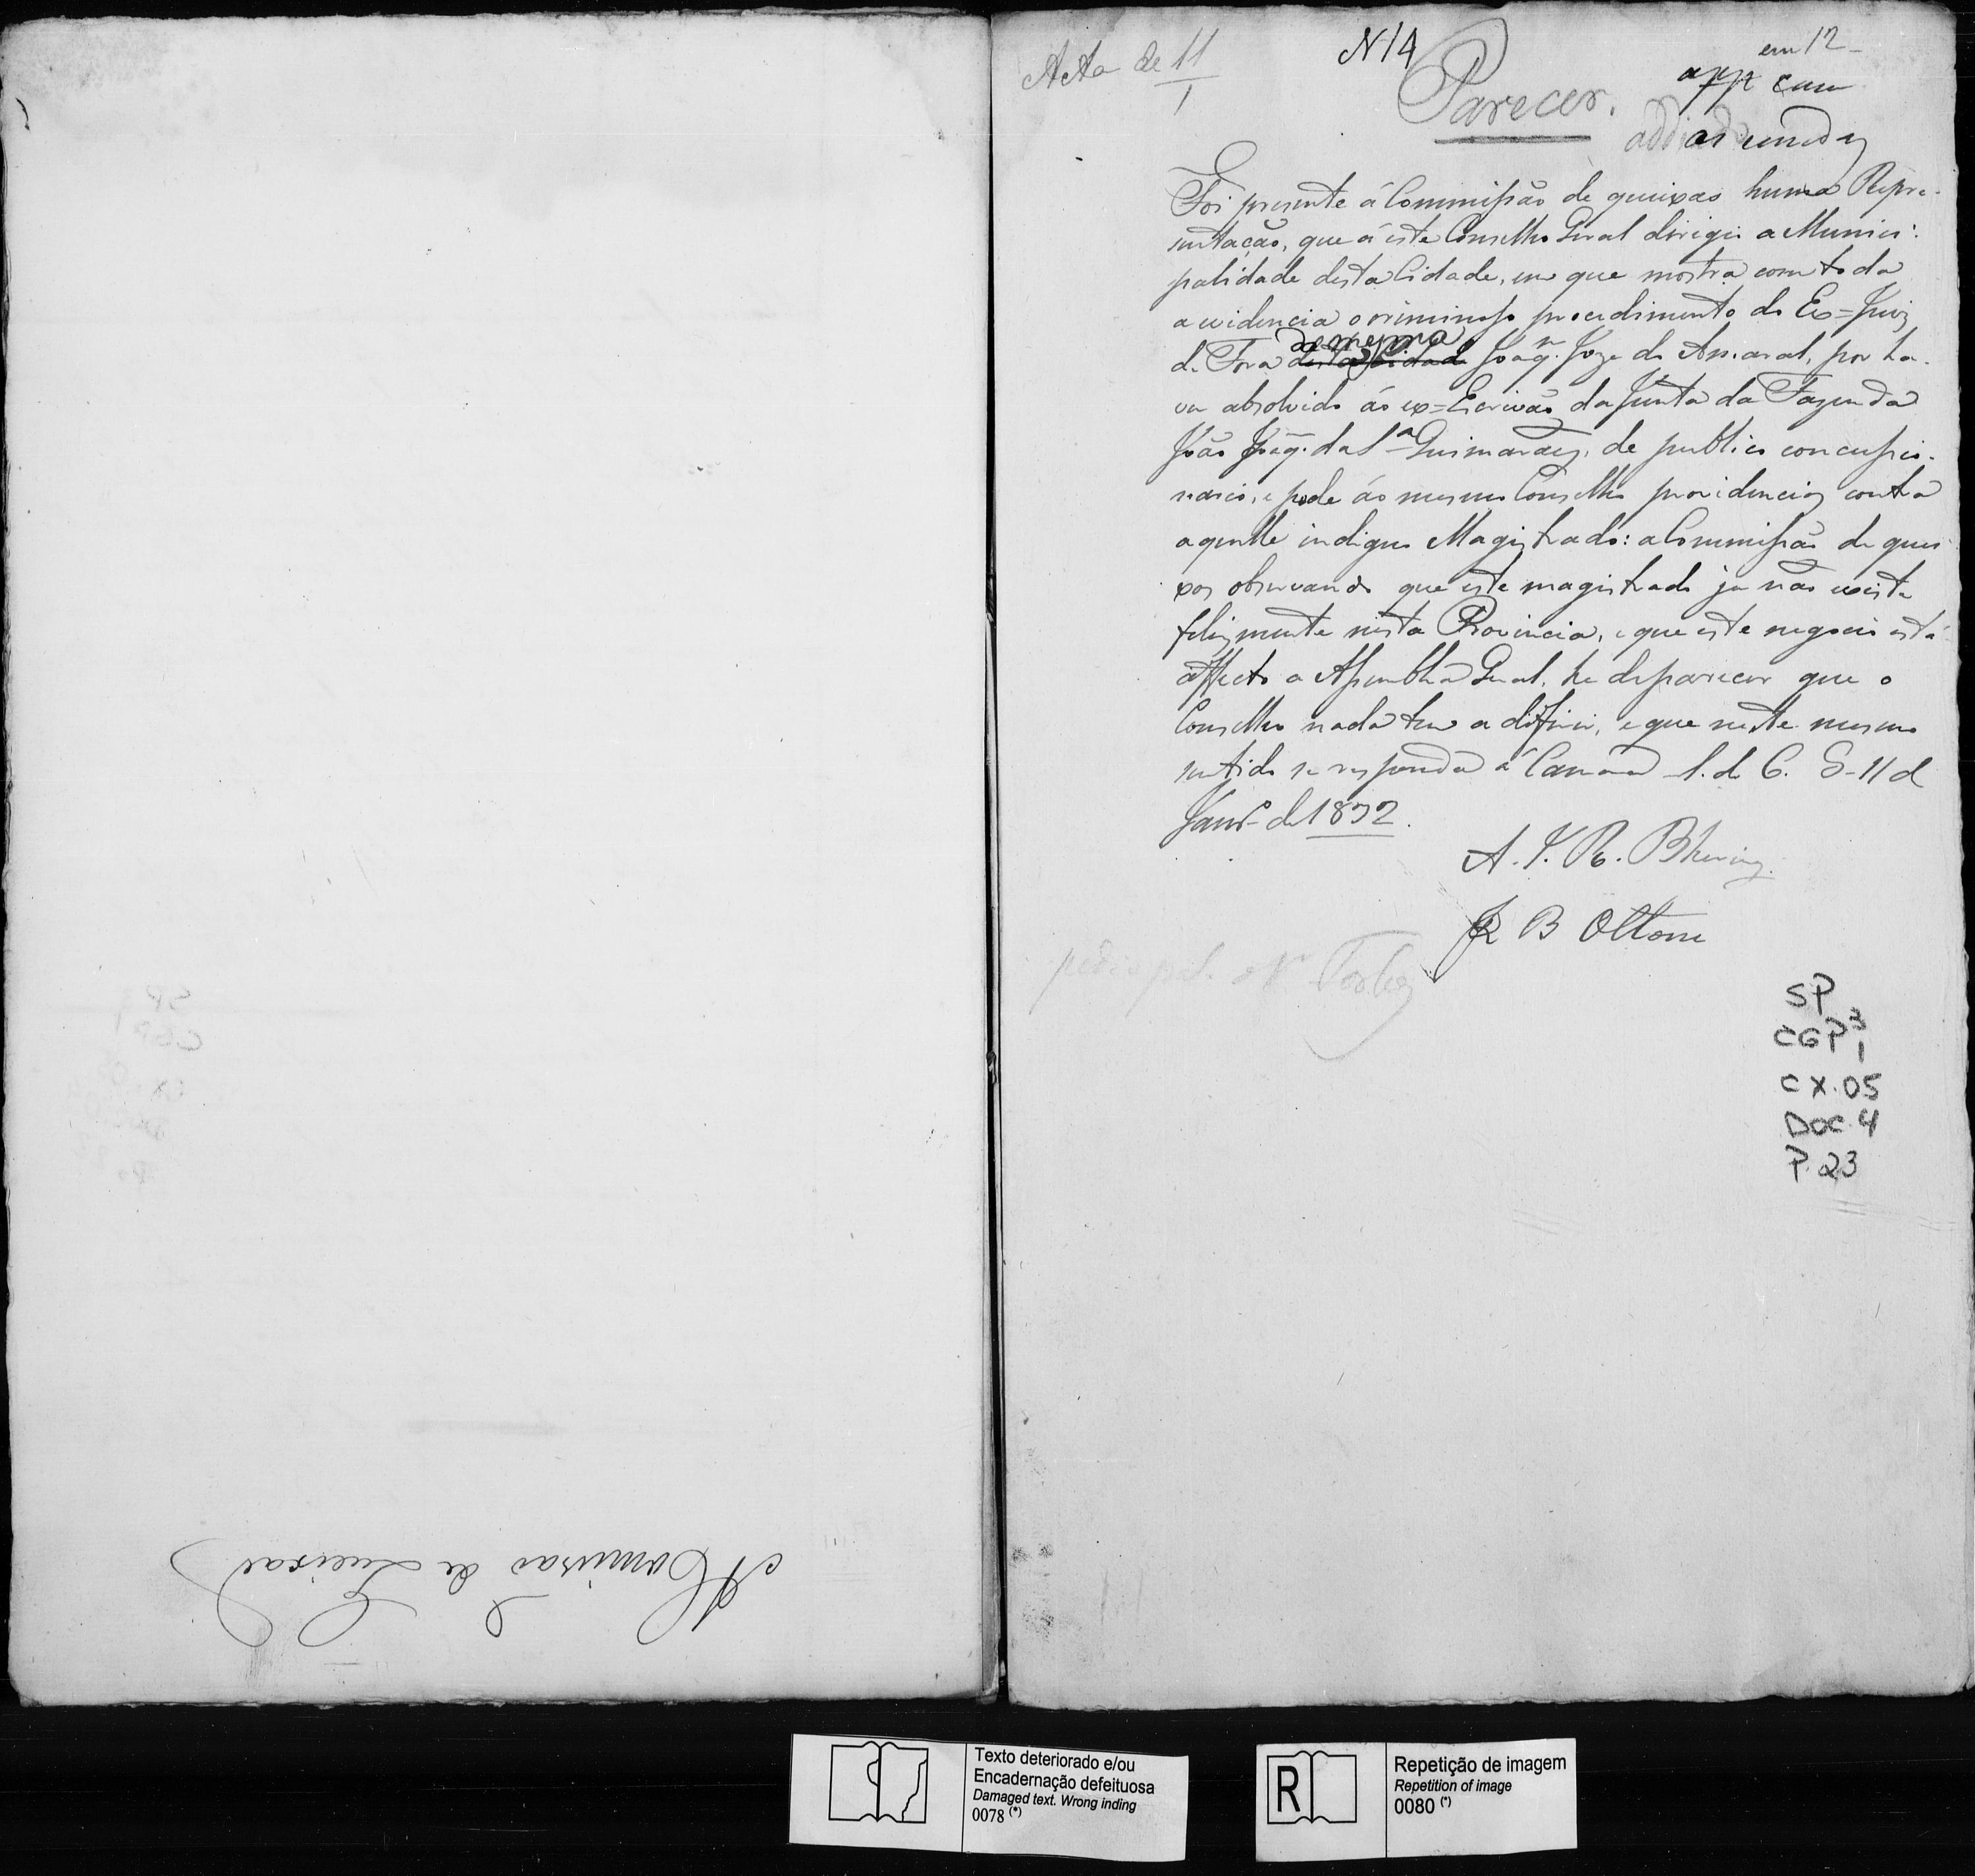 A Comissão de Queixas
Acta de 11
1
N 14
em 12
app com
as emendas
Parecer.
Foi presente á Commissão de queixas huma Repre-
sentação, que á este Conselho Geral dirigio a Munici-
palidade desta Cidade, em que mostra com toda
a evidencia o criminoso procedimento do Ex=Juiz
da mesma
de Fora desta Cidade Joaqm. Joze do Amaral, por ha-
ver absolvido ao ex=Escrivão da Junta da Fazenda
João Joaq. da Sa. Guimarães, de publico concussio-
nario, e pede ao mesmo Conselho providencias contra
aquelle indigno Magistrado: a Commissão de quei-
xas observando que este magistrado ja não existe
felizmente nesta Provincia, e que este negocio está
affecto a Assemblea Geral, he de parecer que o
Conselho nada tem a diferir, e que neste mesmo
sentido se responda á Camara S. da C. G. 11 de
Janro. de 1832.
A. J. R. Bhering
J B Ottoni
SP
CGP 3
1
CX. 05
DOC. 4
P. 23
Texto deteriorado e/ou
Encadernação defeituosa
Damaged text. Wrong inding
0078 (*)
R
Repetição de imagem
Repetition of image
0080 (*)